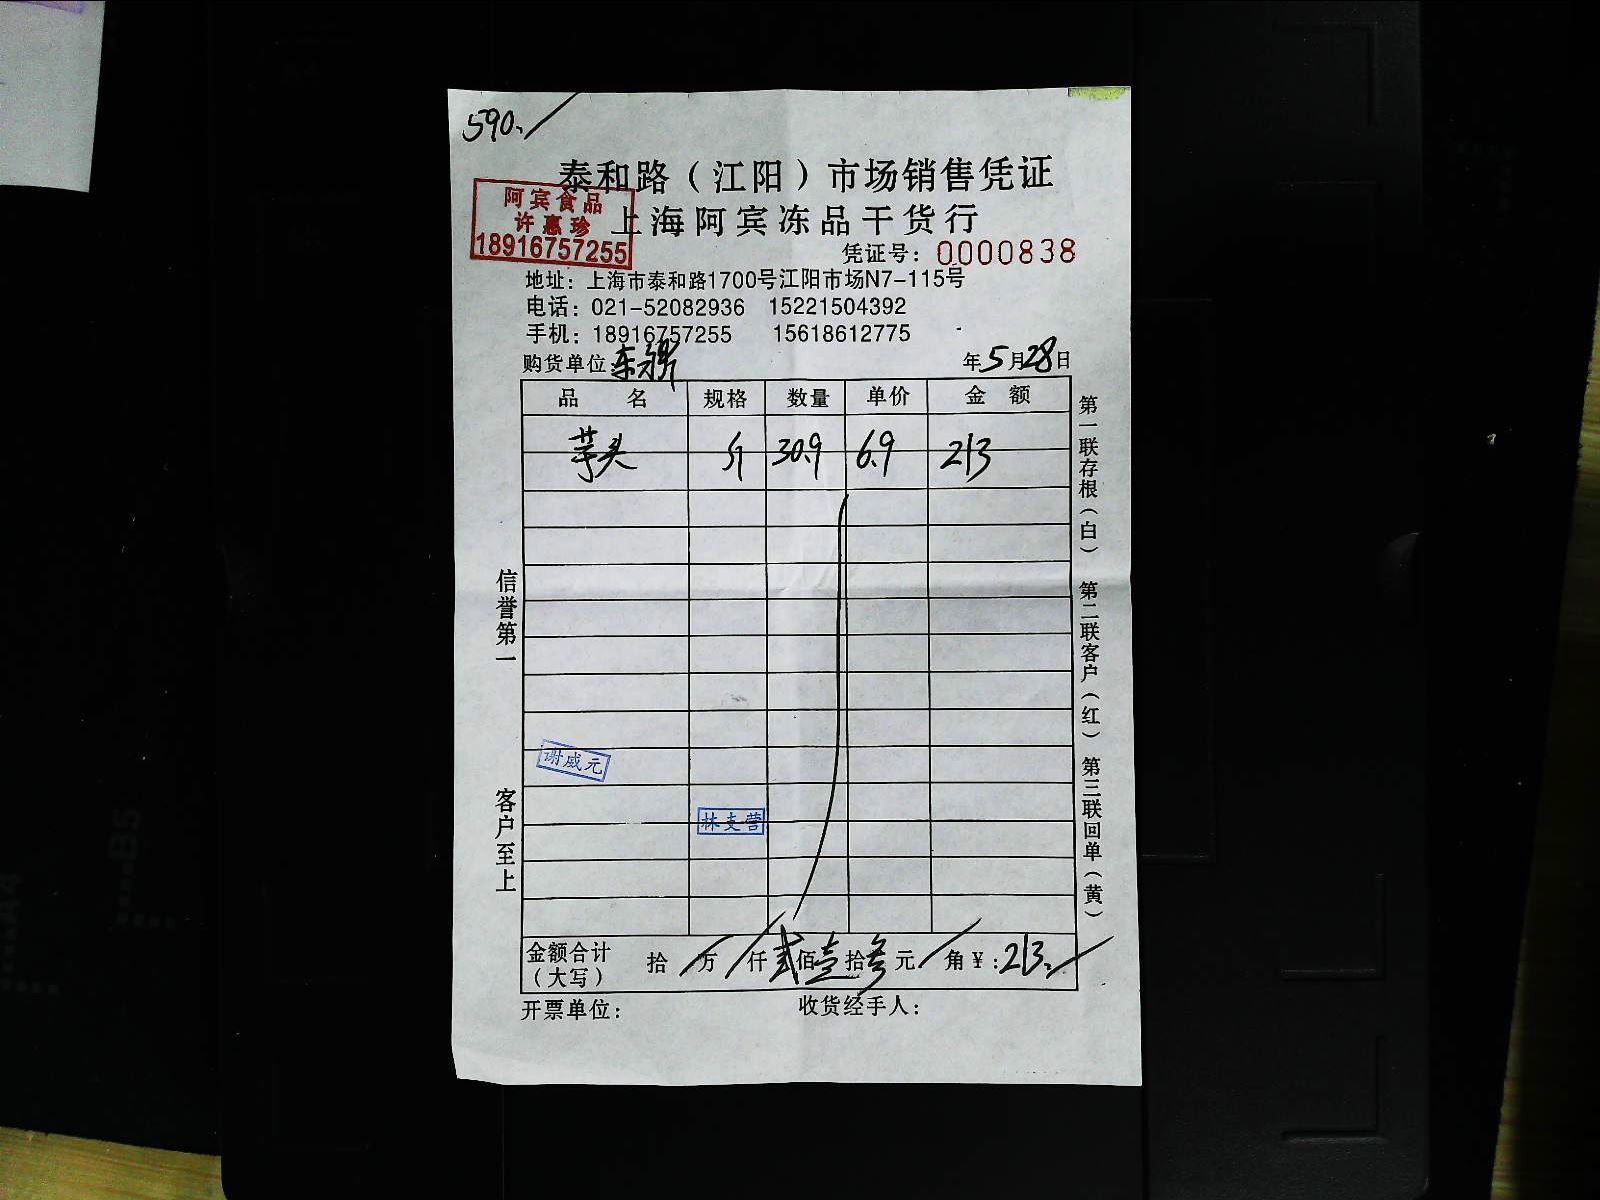 590.
泰和路（江阳）市场销售凭证
阿宾食品
许惠珍
18916757255
上海阿宾冻品干货行
凭证号：0000838
地址：上海市泰和路1700号江阳市场N7-115号
电话：021-52082936 15221504392
手机：18916757255 15618612775
购货单位 年5月28日
品 名 规格 数量 单价 金 额
芋头 斤 30.9 6.9 213
谢威元
林支营
金额合计（大写） 拾 万 仟贰佰壹拾叁元 角￥：213.
开票单位： 收货经手人：
信誉第一 客户至上
第一联存根（白） 第二联客户（红） 第三联回单（黄）